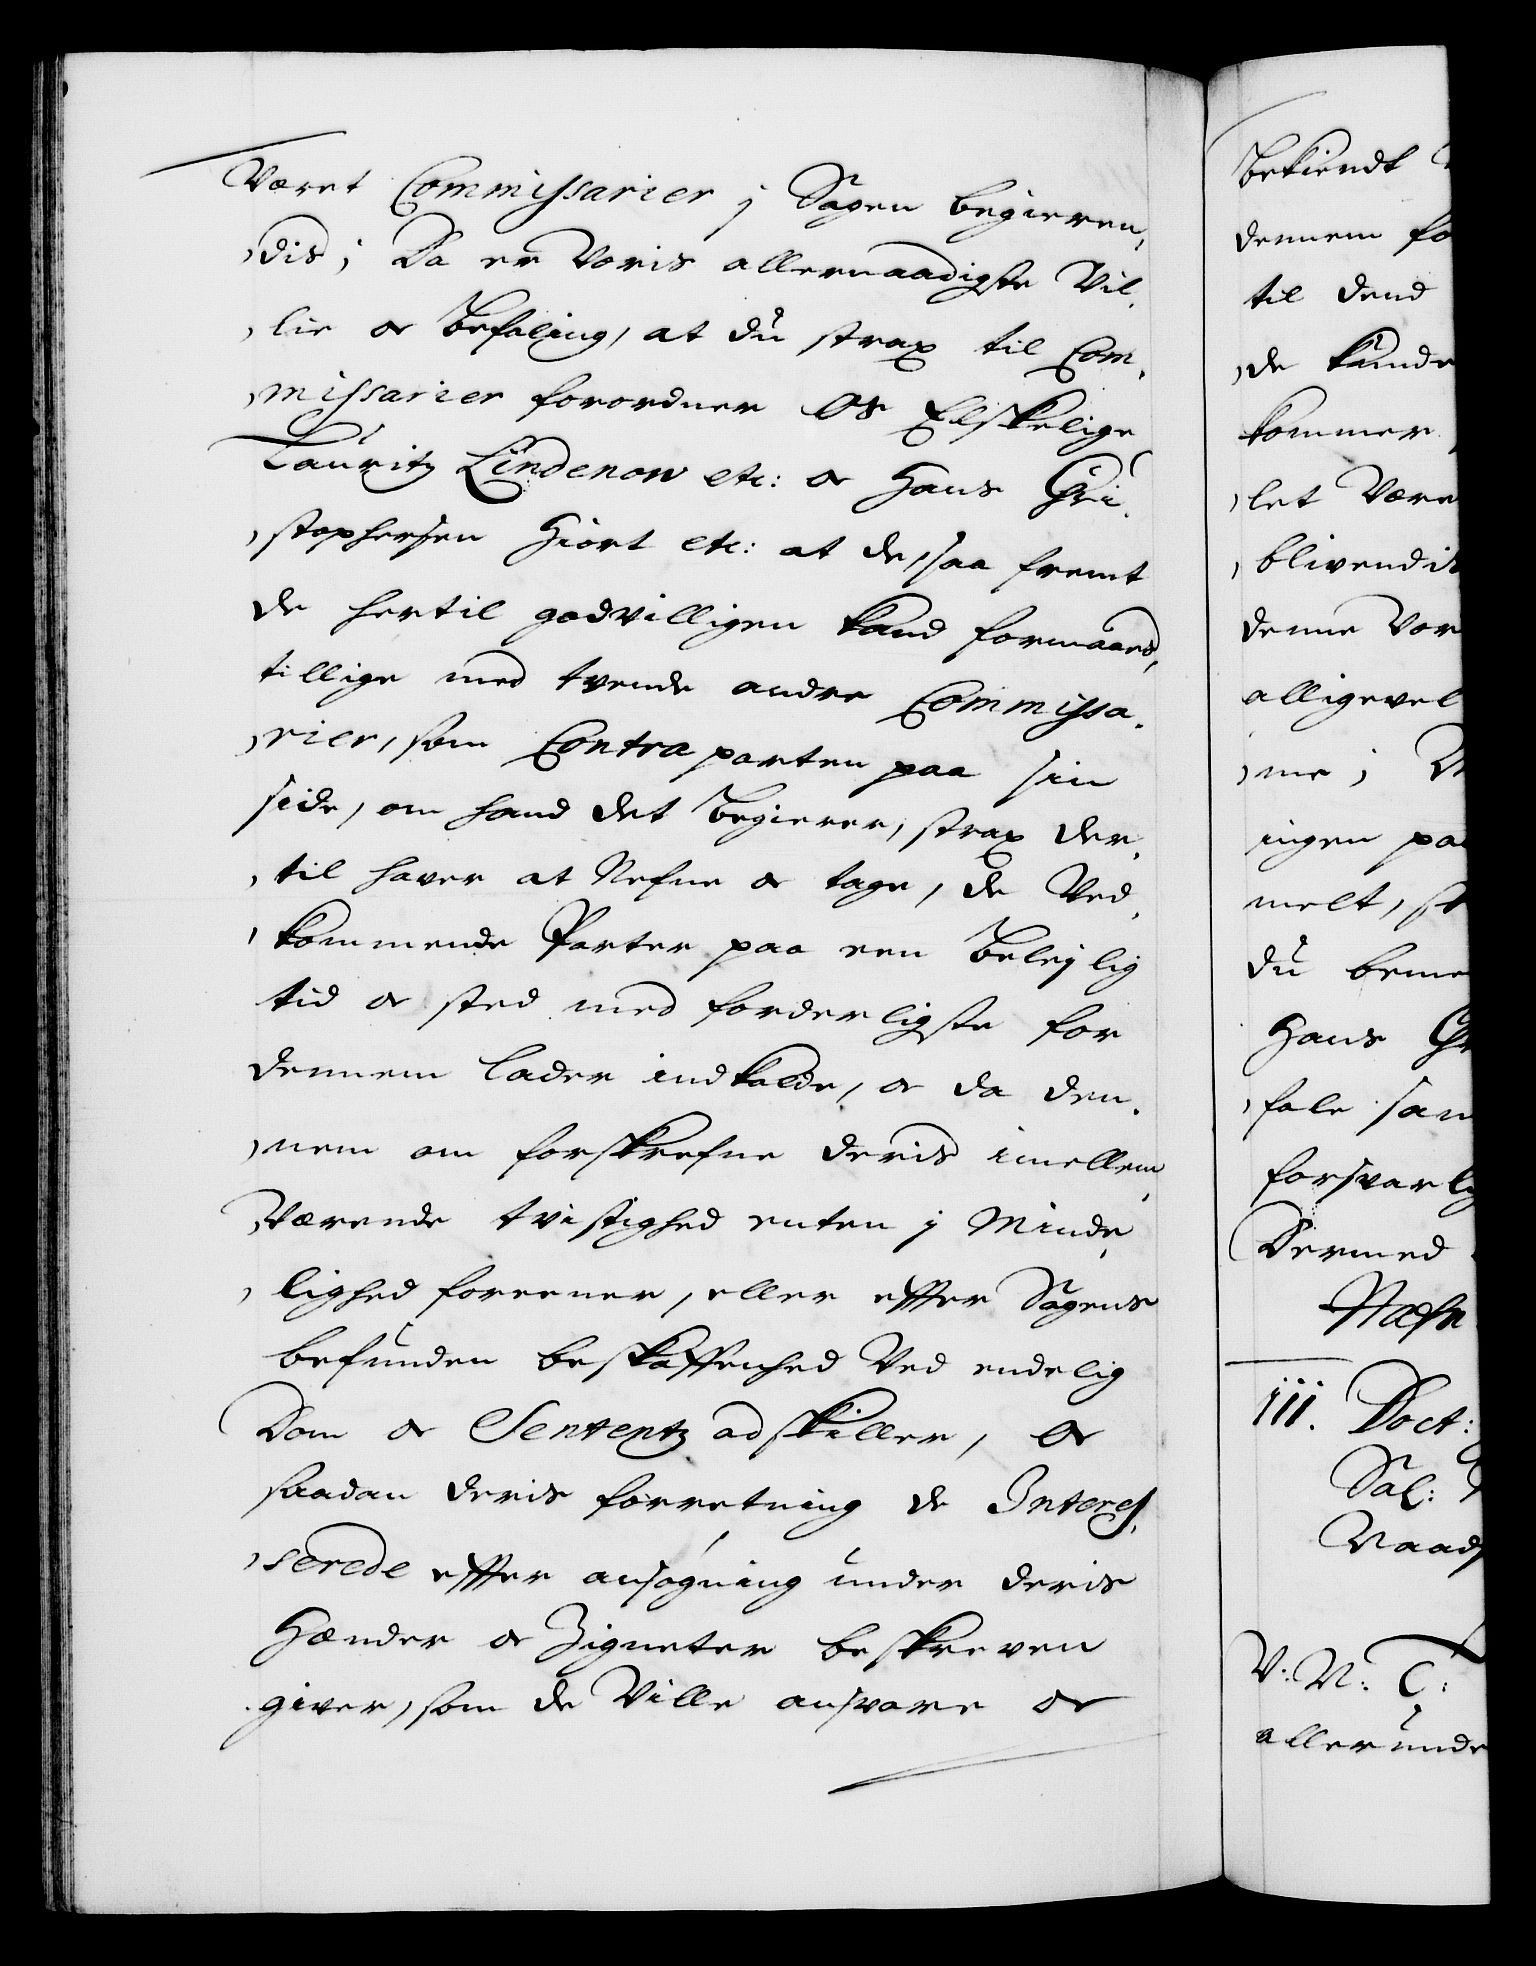 Været Commissarier j Sagen begieren,
,dis; Da er Voris allernaadigste Vil,
,lie og Befaling, at du strax til Com,
,missarier forordner Os Elskelige
Lauritz Lindenow etc: og Hans Chri,
,stophersen Hiort etc: at de, saa fremt
de hertil godvilligen kand formaaes,
tillige med tvende andre Commissa,
,rier, som Contraparten paa sin
side, om hand det begierer, strax der,
,til haver at Nefne og tage, de Ved,
,kommende Parter paa een Belejlig
tid og sted med forderligste for
dennem lader indkalde, og da den,
,nem om forskrefne deris imellem,
Værende tvistighed enten j Minde,
,lighed foreener, eller effter Sagens
befunden beskaffenhed Ved endelig
Dom og Sententz adskiller, Og
saadan deris forretning de Interes,
,serede effter ansøgning under deris
Hænder og Zigneter beskreven
giver, som de Ville ansvare og
Bekiendt
dennem fo
til dend
,de kunde
kommer
,let Være
,blivendis
denne Vor
alligevel
,me; V
ingen paa
melt, s
du beme
Hans Chr
,fale sam
forsvarlig
Dermed
111. Doct:
Sal:
V: N: T:
allerunde